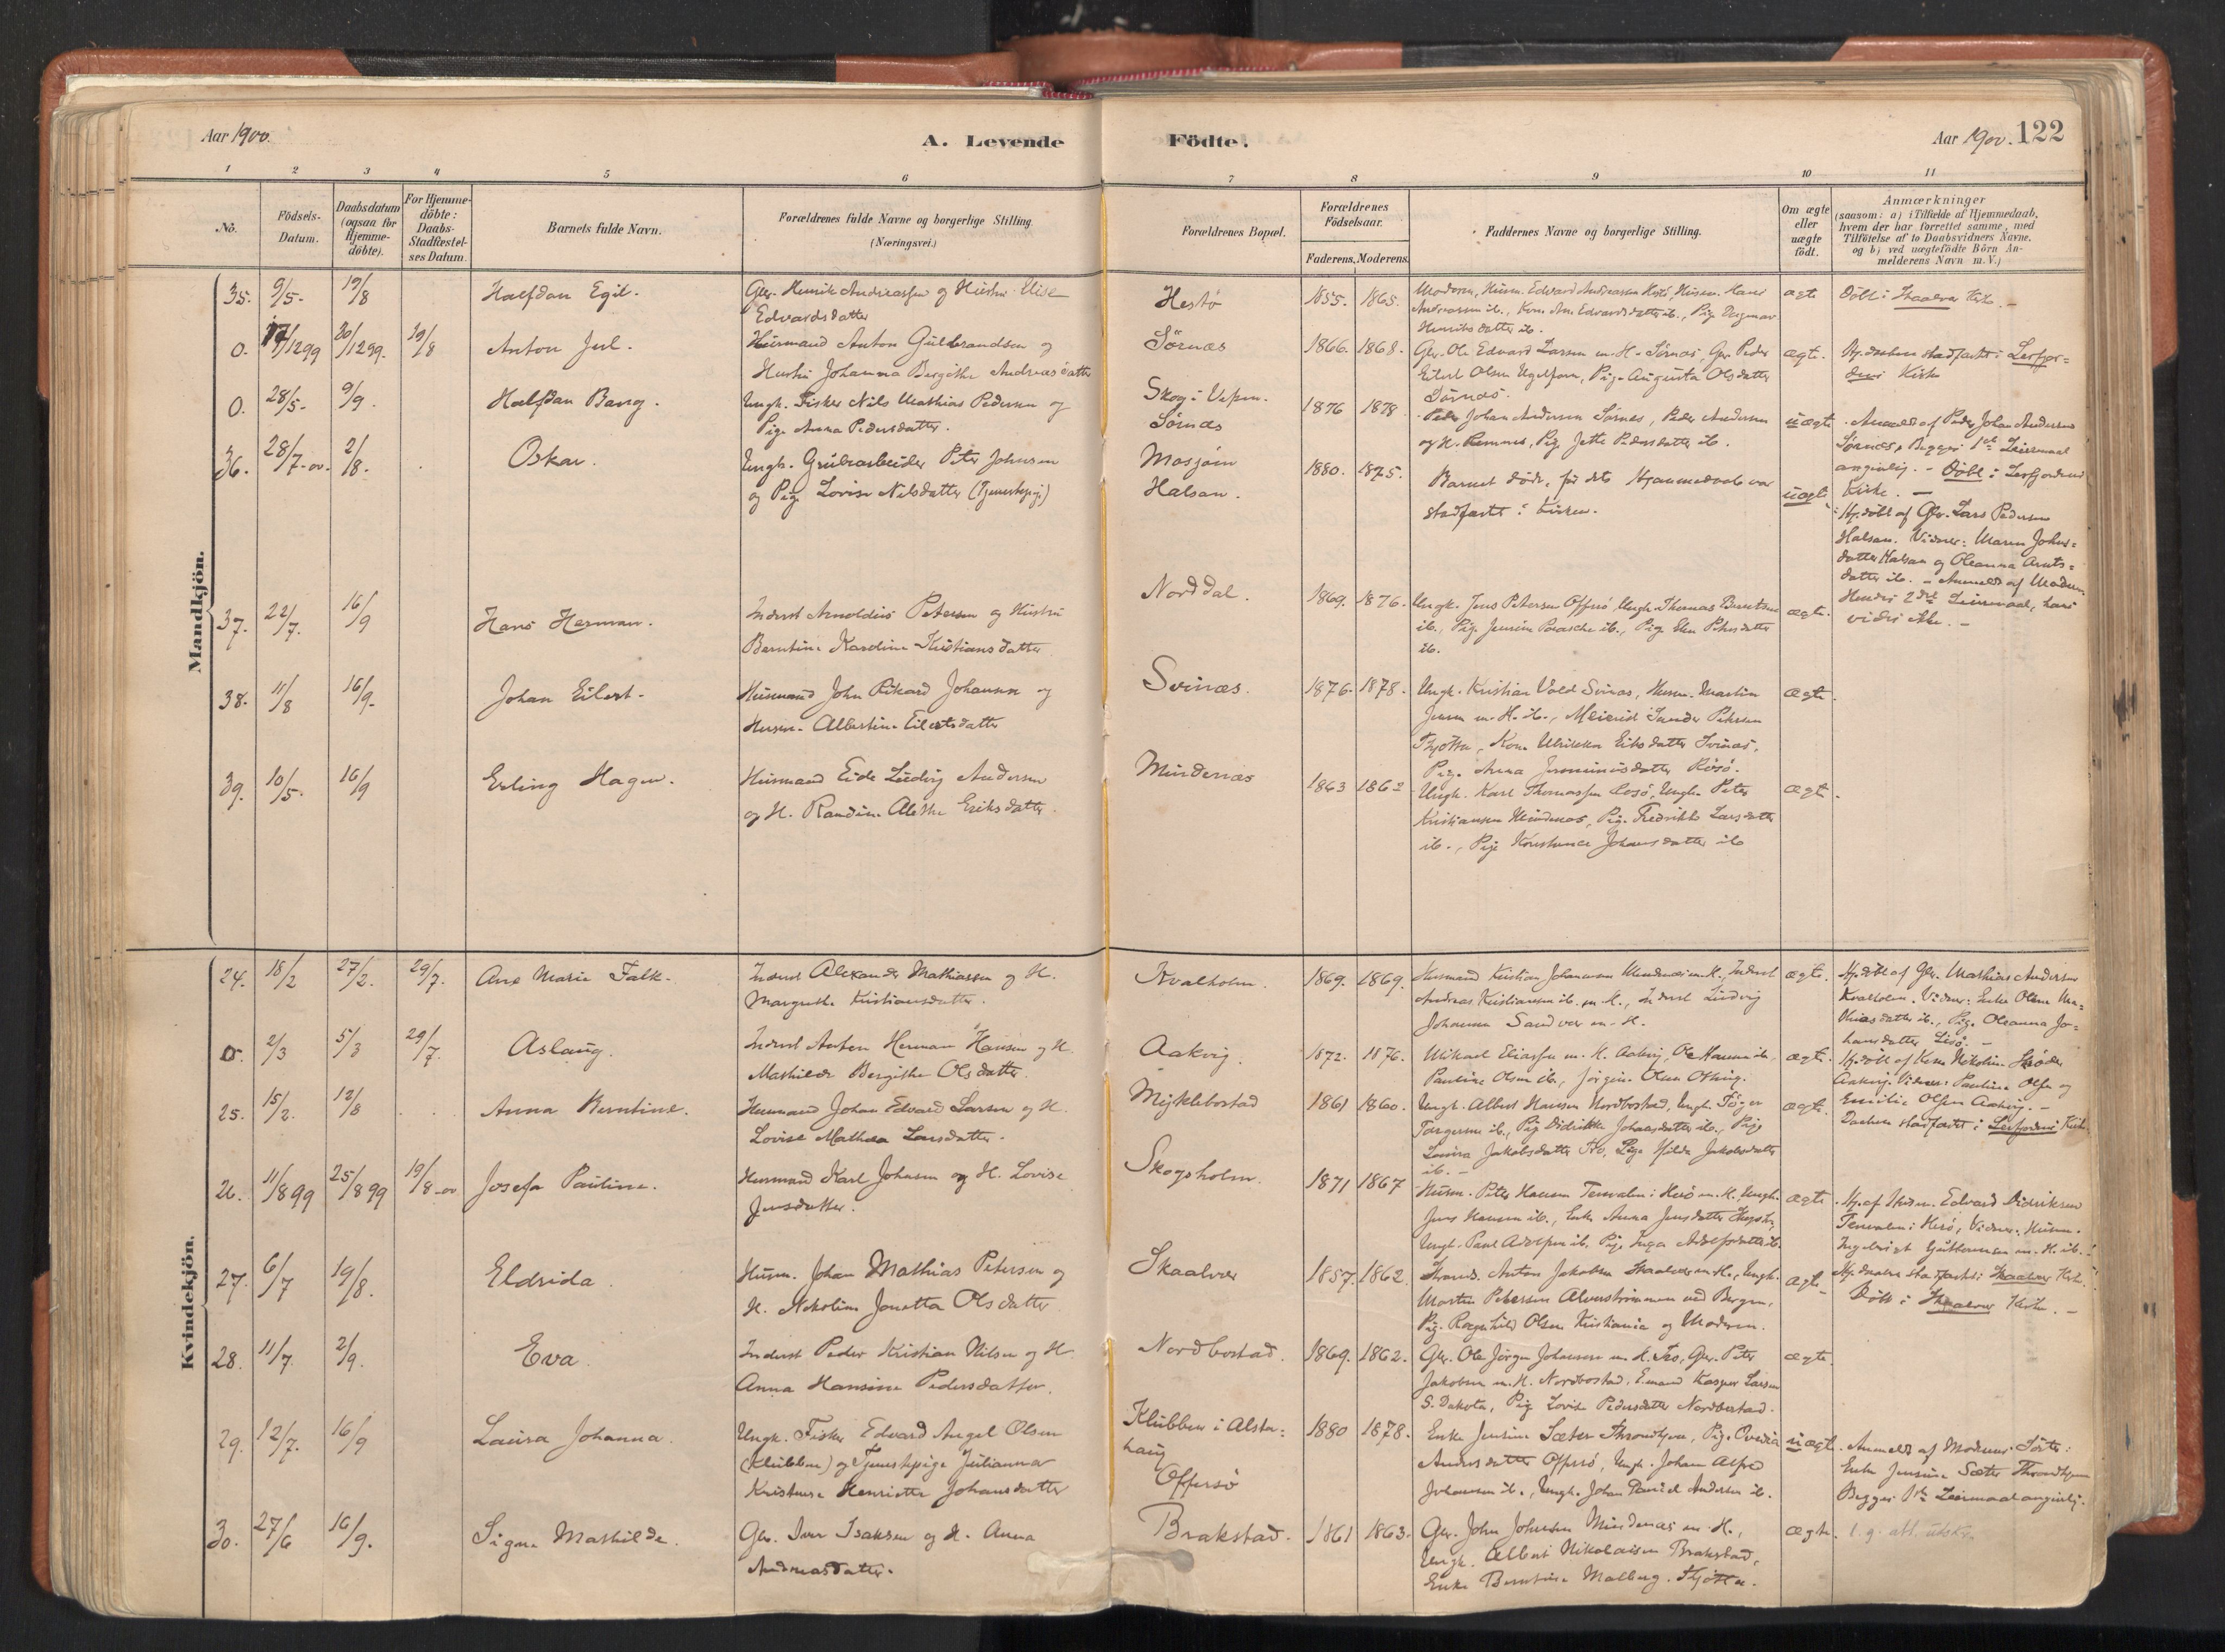 Aar 1900.
A. Levende
Födte.
Aar 1900. 122
1 2 3 4 5 6 7 8 9 10 11
No.
Födsels-
Datum.
Daabsdatum
(ogsaa for
Hjemme-
döbte).
For Hjemme-
döbte:
Daabs-
Stadfæstel-
ses Datum.
Barnets fulde Navn.
Forældrenes fulde Navne og borgerlige Stilling.
(Næringsvei.)
Forældrenes Bopæl.
Forældrenes
Födselsaar.
Faderens. Moderens.
Faddernes Navne og borgerlige Stilling.
Om ægte
eller
uægte
födt.
Anmærkninger
(saasom: a) i Tilfælde af Hjemmedaab,
hvem der har forrettet samme, med
Tilföielse af to Daabsvidners Navne,
og b) ved uægtefödte Börn An-
melderens Navn m. V.)
Mandkjön.
35. 9/5- 19/8 Halfdan Egil.
Gbr. Henrik Andreassen og Hustru Elise
Edvardsdatter
Hestø 1855. 1865.
Moderen, Husm. Edvard Andreassen Hestø, Husm. Hans
Andreassen ib., Kone Ane Edvardsdatter ib., Pig. Dagmar
Henriksdatter ib.
ægte
Döbt i Skaalvær Kirke.-
0. 17/1299 30/1299. 19/8 Anton Jul.
Husmand Anton Gulbrandsen og
Hustru Johanna Bergithe Andreasdatter
Sörnæs 1866. 1868.
Gbr. Ole Edvard Larsen m. H. Sörnæs, Gbr. Peder
Eilert Olsen, Pige Augusta Olsdatter
Sörnæs.
ægte.
Hj.daaben stadfæstet i Leirfjor-
dens Kirke
0. 28/5- 9/9. Halfdan Bang.
Ungk. Fisker Nils Mathias Pedersen og
Pige Anna Pedersdatter.
Skog i Vefsen.
Sörnæs
1876 1878
Peder Johan Andersen Sörnes, Peder Andersen
og H. Remmes, Pig. Jette Pedersdatter ib.
uægte
Anmeldt af Peder Johan Andersen
Sörnæs, Begges 1ste Leiermaal
angivelig.- Döbt i Leirfjordens
Kirke.-
36. 28/7-00. 2/8. Oskar.
Ungk. Grubearbeider Peter Johnsen
og Pige Lovise Nilsdatter (Tjenestepige)
Mosjöen
Halsan.
1880. 1875.
Barnet döde, för dets Hjemmedaab var
stadfæstet i Kirken.
uægte
Hj.döbt af Gbr. Lars Pedersen
Halsan. Vidner: Maren Johns-
datter Halsan og Oleanna Arnts-
datter ib. - Anmeldt af Moderen.
Hendes 2det Leiermaal, hans
vides ikke.-
37. 22/7. 16/9 Hans Herman.
Inderst Arnoldus Petersen og Hustru
Berntine Karoline Kristiansdatter
Norddal. 1869. 1876.
Ungk. Jens Petersen Offersö, Ungk. Thomas Berntsen
ib., Pig. Jensine Paasche ib., Pig. Elen Petersdatter
ib.
ægte.
38. 11/8 16/9. Johan Eilert.
Husmand John Rikard Johansen og
Hustru Albertine Eilertsdatter
Svinæs. 1876. 1878.
Ungk. Kristian Vold Svinæs, Husm. Martin
Jensen m. H. ib., Meierist Sander Petersen
Thjøtta, Kone Ulrikka Eilsdatter Svinæs,
Pig. Anna Jeronimusdatter Rösö.
ægte.
39. 10/5. 16/9 Erling Hagen.
Husmand Eide Ludvig Andersen
og H. Randine Alethe Eriksdatter
Mindenæs 1863 1862
Ungk. Karl Thomassen Rosö, Ungk. Peter
Kristiansen Mindenæs, Pig. Fredrikke Larsdatter
ib., Pige Konstance Johansdatter ib
ægte.
Kvindekjön.
24. 18/2 27/2. 29/7. Ane Marie Falk.
Inderst Alexander Mathiassen og H.
Margrethe Kristiansdatter.
Kvalholm. 1869. 1869.
Husmand Kristian Johannessen Mindenæs m. H., Inderst
Andreas Kristiansen ib. m. H., Inderst Ludvig
Johansen Sandvær m. H.
ægte.
Hj.döbt af Gbr. Mathias Andersen
Kvalholm. Vidner: Enke Olene Ma-
thiasdatter ib., Pig. Oleanna Jo-
hansdatter Lisö.-
0. 2/3 5/3 29/7. Aslaug.
Inderst Anton Herman Hansen og H.
Mathilde Bergithe Olsdatter.
Aakvig. 1872. 1876.
Mikael Eliassen m. H. Aakvig, Ole Hansen ib.,
Pauline Olsen ib., Jörgine Olsen
ægte.
Hj.döbt af Kone Nikoline
Aakvig. Vidner: Pauline Olsen og
Emilie Olsen Aakvig.-
Daaben stadfæstet i Leirfjordens Kirke.
25. 15/2. 12/8 Anna Berntine.
Husmand Johan Edvard Larsen og H.
Lovise Mathea Larsdatter.
Myklebostad 1861 1860.
Ungk. Albert Hansen Nordbostad, Ungk. Töger
Torgersen ib., Pig Didrikke Johansdatter ib., Pig
Lovisa Jakobsdatter Tro, Pige Hilda Jakobsdatter
ib.-
ægte.
26. 11/899 25/899 19/8-00 Josefa Pauline.
Husmand Karl Johnsen og H. Lovise
Jensdatter.
Skogsholm. 1871 1867
Husm. Peter Hansen Tenvalen i Herö m. H., Ungk.
Jens Hansen ib., Enke Anna Jensdatter
Ungk. Paul Adolfsen ib., Pige Inga Adolfsdatter ib.
ægte
Hj. af Husm. Edvard Didriksen
Tenvalen i Herö, Vidner: Husm.
Ingebrigt Guttormsen m. H. ib.
Hj.daaben stadfæstet i Skaalvær Kirke.
27. 6/7 19/8. Eldrida
Husm. Johan Mathias Petersen og
H. Nikoline Jonetta Olsdatter
Skaalvær 1857. 1862.
Anton Jakobsen Skaalvær m. H., Ungk.
Morten Petersen Alverströmmen ved Bergen,
Pig. Ragnhild Olsen Kristiania og Moderen.
ægte
Döbt i Skaalvær Kirke.-
28. 11/7. 2/9. Eva.
Inderst Peder Kristian Nilsen og H
Anna Hansine Pedersdatter.
Nordbostad. 1869. 1862.
Gbr. Ole Jörgen Johansen m. H. Tro, Gbr. Peter
Jakobsen m. H. Nordbostad, E.mand Kasper Larsen
S. Dakota, Pig Lovise Pedersdatter Nordbostad.
ægte.
29. 12/7. 16/9 Laura Johanna.
Ungk. Fisker Edvard Angel Olsen
(Klubben) og Tjenestepige Julianna
Kristense Henriette Johansdatter
Klubben i Alsta-
haug
Offersö
1880 1878.
Enke Jensine Sæter Throndhjem, Pige Ovidia
Andersdatter Offersö, Ungk. Johan Alfred
Johansen ib., Ungk. Johan Daniel Andersen ib.
uægte.
Anmeldt af Moderens Söster:
Enke Jensine Sæter Throndhjem
Begges 1ste Leiermaal angivelig.
30. 27/6 16/9. Signe Mathilde.
Gbr. Iver Isaksen og H. Anna
Andreasdatter.
Brakstad. 1861 1863.
Gbr. John Johnsen Mindenæs m. H.,
Ungk. Albert Nikolaisen Brakstad,
Enke Berntine Malberg. Thjötta.
ægte.